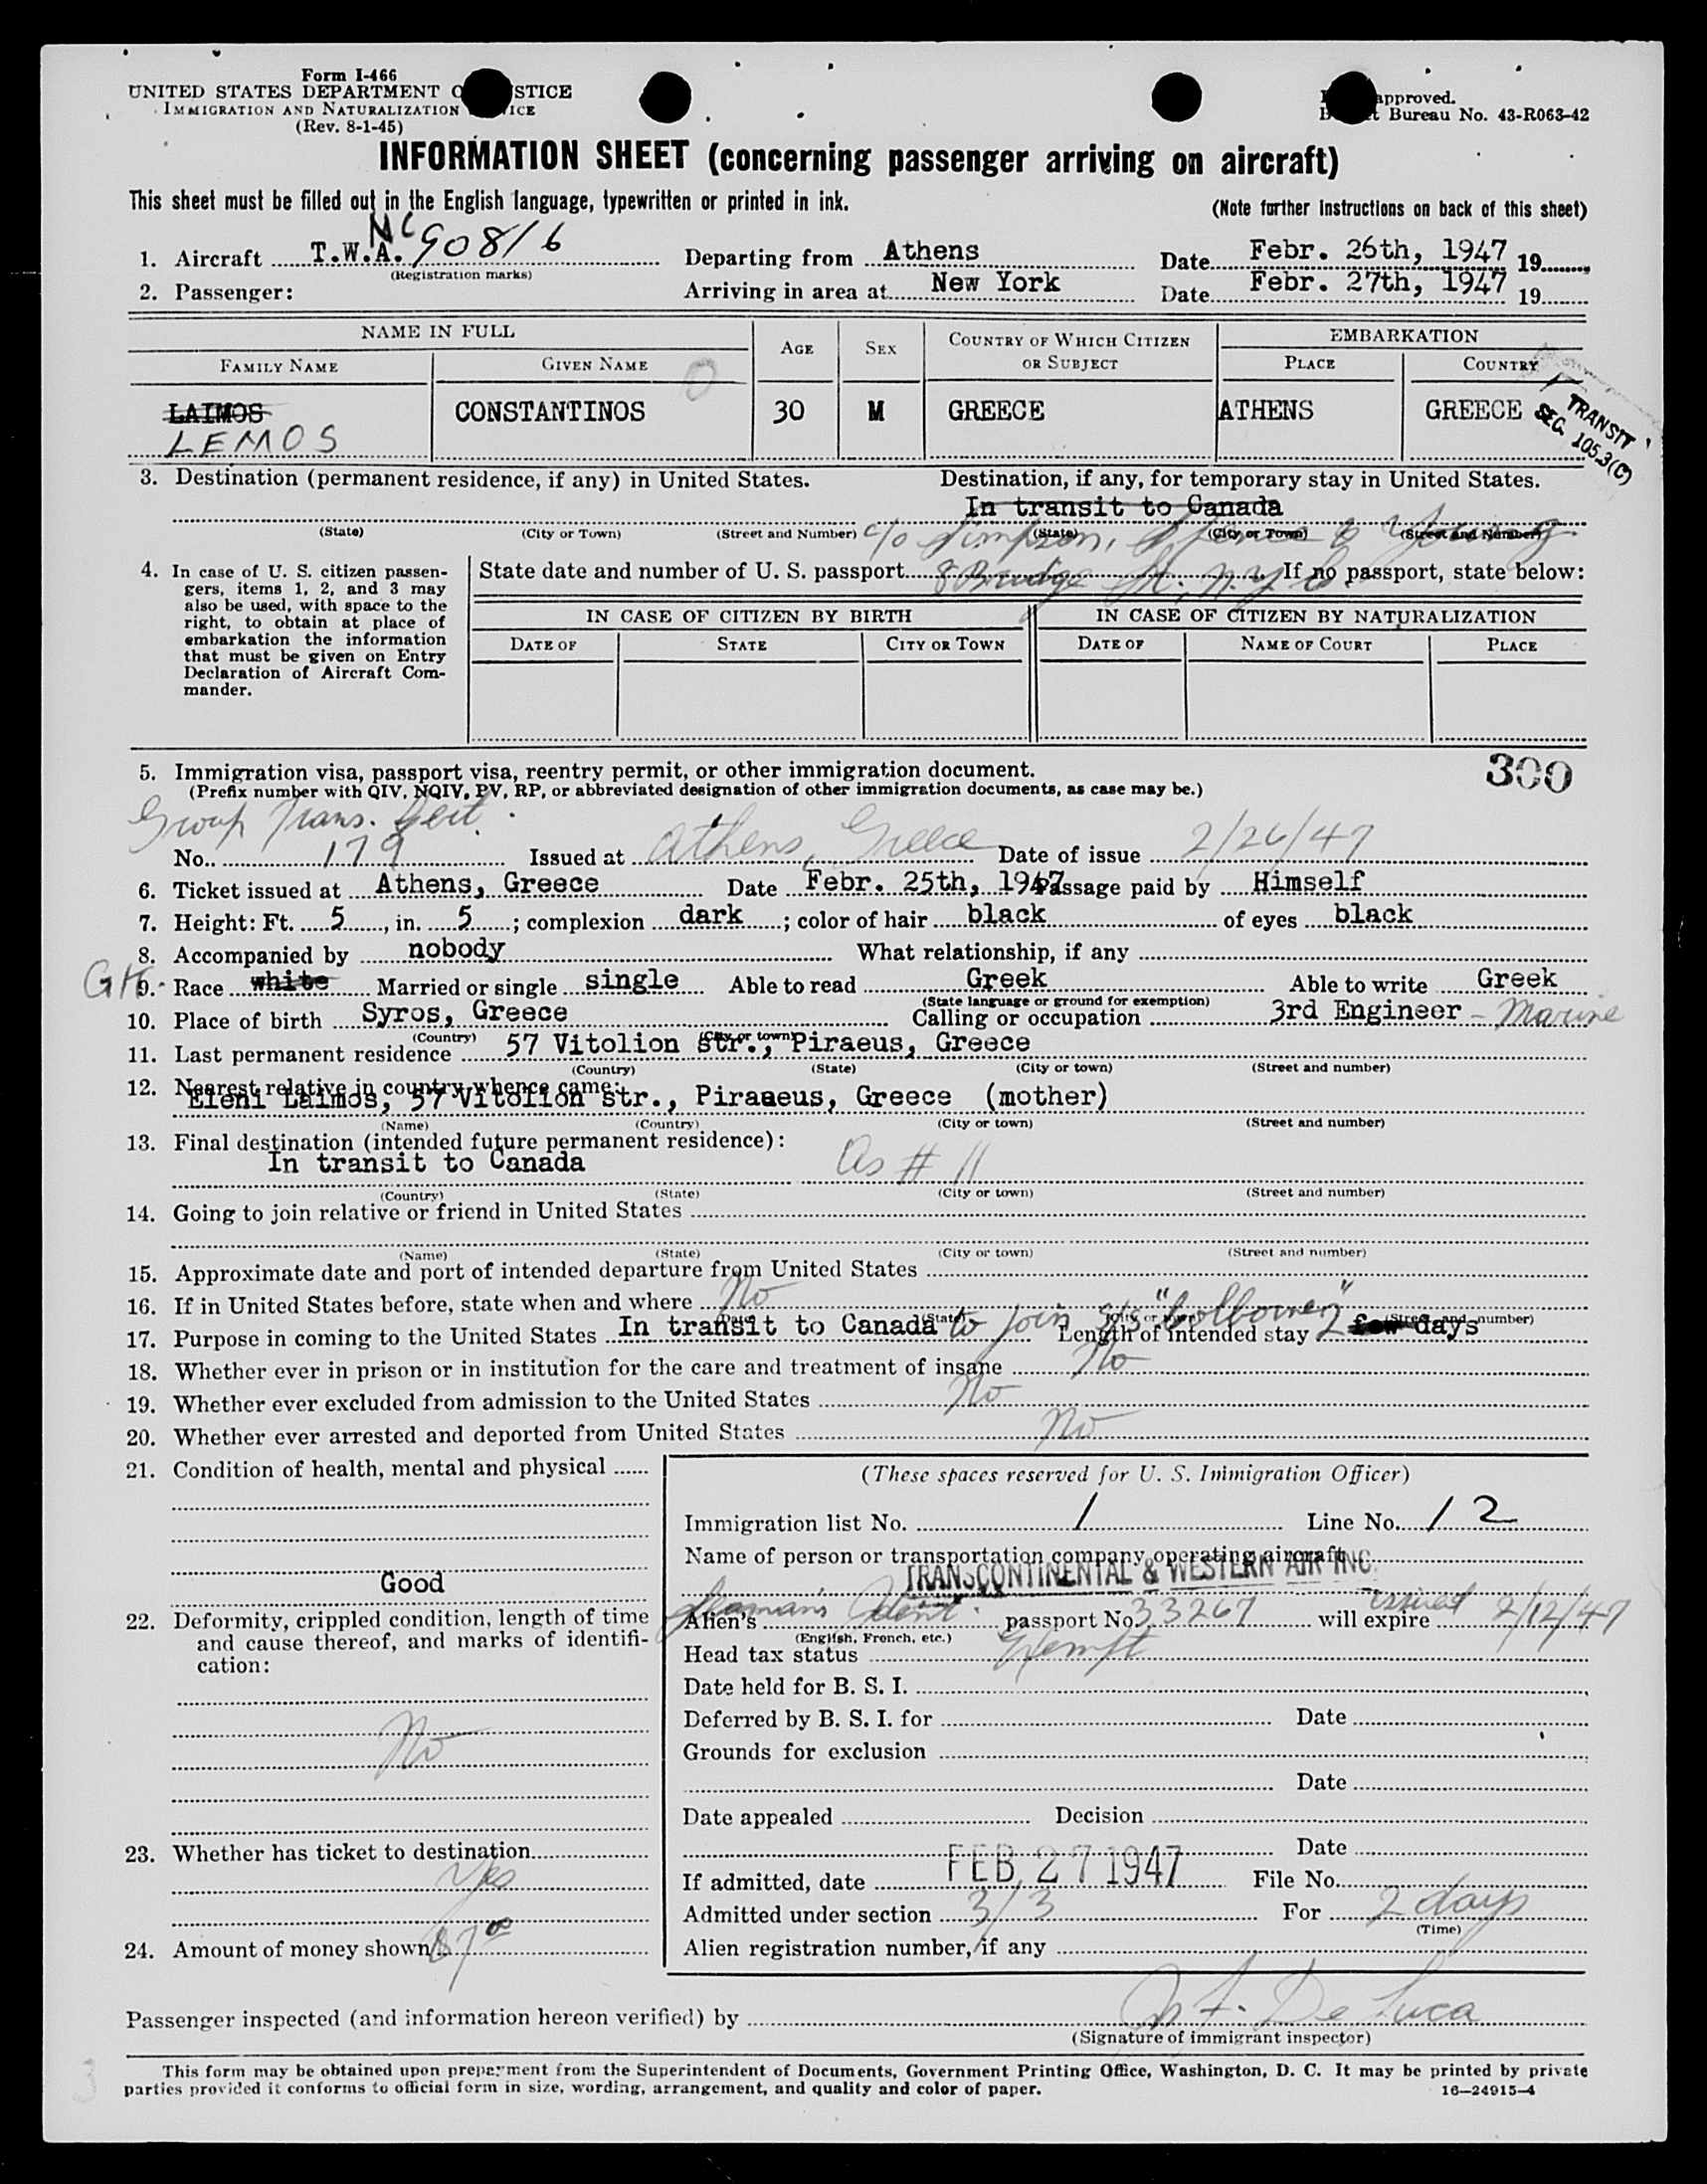 Form I-466
UNITED STATES DEPARTMENT O STICE
IMMIGRATION AND NATURALIZATION ICE
(Rev. 8-1-45)
approved.
t Bureau No. 43-R063-42
INFORMATION SHEET (concerning passenger arriving on aircraft)
This sheet must be filled out in the English language, typewritten or printed in ink.
(Note further instructions on back of this sheet)
1. Aircraft T.W.A. NC 90816 Departing from Athens Date Febr. 26th, 1947 19
(Registration marks)
2. Passenger: Arriving in area at New York Date Febr. 27th, 1947 19
NAME IN FULL AGE SEX COUNTRY OF WHICH CITIZEN OR SUBJECT EMBARKATION
FAMILY NAME GIVEN NAME PLACE COUNTRY
LAIMOS CONSTANTINOS 30 M GREECE ATHENS GREECE
LEMOS
TRANSIT
SEC. 105.3(C)
3. Destination (permanent residence, if any) in United States. Destination, if any, for temporary stay in United States.
In transit to Canada
(State) (City or Town) (Street and Number) (State) (City or Town) (Street and Number)
c/o Simpson, Spence & Young
8 Bridge St. N.Y.C.
4. In case of U. S. citizen passengers, items 1, 2, and 3 may also be used, with space to the right, to obtain at place of embarkation the information that must be given on Entry Declaration of Aircraft Commander.
State date and number of U. S. passport If no passport, state below:
IN CASE OF CITIZEN BY BIRTH IN CASE OF CITIZEN BY NATURALIZATION
DATE OF STATE CITY OR TOWN DATE OF NAME OF COURT PLACE
5. Immigration visa, passport visa, reentry permit, or other immigration document.
300
(Prefix number with QIV, NQIV, PV, RP, or abbreviated designation of other immigration documents, as case may be.)
Group Trans. Cert.
No. 179 Issued at Athens, Greece Date of issue 2/26/47
6. Ticket issued at Athens, Greece Date Febr. 25th, 1947 Passage paid by Himself
7. Height: Ft. 5, in. 5; complexion dark; color of hair black of eyes black
8. Accompanied by nobody What relationship, if any
GK
9. Race white Married or single single Able to read Greek Able to write Greek
(State language or ground for exemption)
10. Place of birth Syros, Greece Calling or occupation 3rd Engineer - Marine
(Country) (City or town)
11. Last permanent residence 57 Vitolion str., Piraeus, Greece
(Country) (State) (City or town) (Street and number)
12. Nearest relative in country whence came:
Eleni Laimos, 57 Vitolion str., Piraaeus, Greece (mother)
(Name) (Country) (City or town) (Street and number)
13. Final destination (intended future permanent residence):
In transit to Canada As # 11
(Country) (State) (City or town) (Street and number)
14. Going to join relative or friend in United States
(Name) (State) (City or town) (Street and number)
15. Approximate date and port of intended departure from United States
16. If in United States before, state when and where No
(Date) (State) (City or town) (Street and number)
17. Purpose in coming to the United States In transit to Canada to join S/S "Colborne" Length of intended stay 2 few days
18. Whether ever in prison or in institution for the care and treatment of insane No
19. Whether ever excluded from admission to the United States No
20. Whether ever arrested and deported from United States No
21. Condition of health, mental and physical
Good
22. Deformity, crippled condition, length of time and cause thereof, and marks of identification:
No
23. Whether has ticket to destination
Yes
24. Amount of money shown $7 00
(These spaces reserved for U. S. Immigration Officer)
Immigration list No. 1 Line No. 12
Name of person or transportation company operating aircraft
TRANSCONTINENTAL & WESTERN AIR INC.
Seaman's Ident. issued
Alien's passport No. 33267 will expire 2/12/47
(English, French, etc.)
Head tax status Exempt
Date held for B. S. I.
Deferred by B. S. I. for Date
Grounds for exclusion
Date
Date appealed Decision
Date
If admitted, date FEB 27 1947 File No.
Admitted under section 3/3 For 2 days
(Time)
Alien registration number, if any
Passenger inspected (and information hereon verified) by De Luca
(Signature of immigrant inspector)
This form may be obtained upon prepayment from the Superintendent of Documents, Government Printing Office, Washington, D. C. It may be printed by private
parties provided it conforms to official form in size, wording, arrangement, and quality and color of paper.
16—24915-4